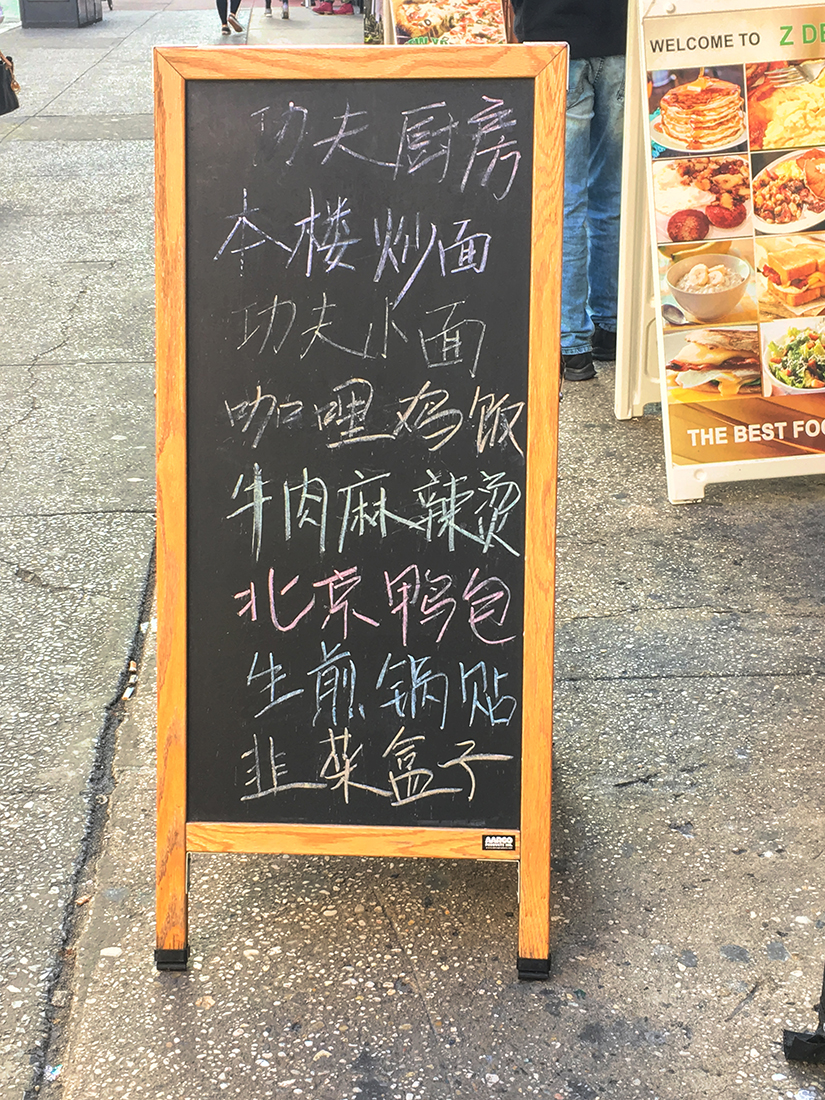 功夫厨房
本楼炒面
功夫小面
咖哩鸡饭
牛肉麻辣烫
北京鸭包
生煎锅贴
韭菜盒子
WELCOME TO Z DE
THE BEST FOO